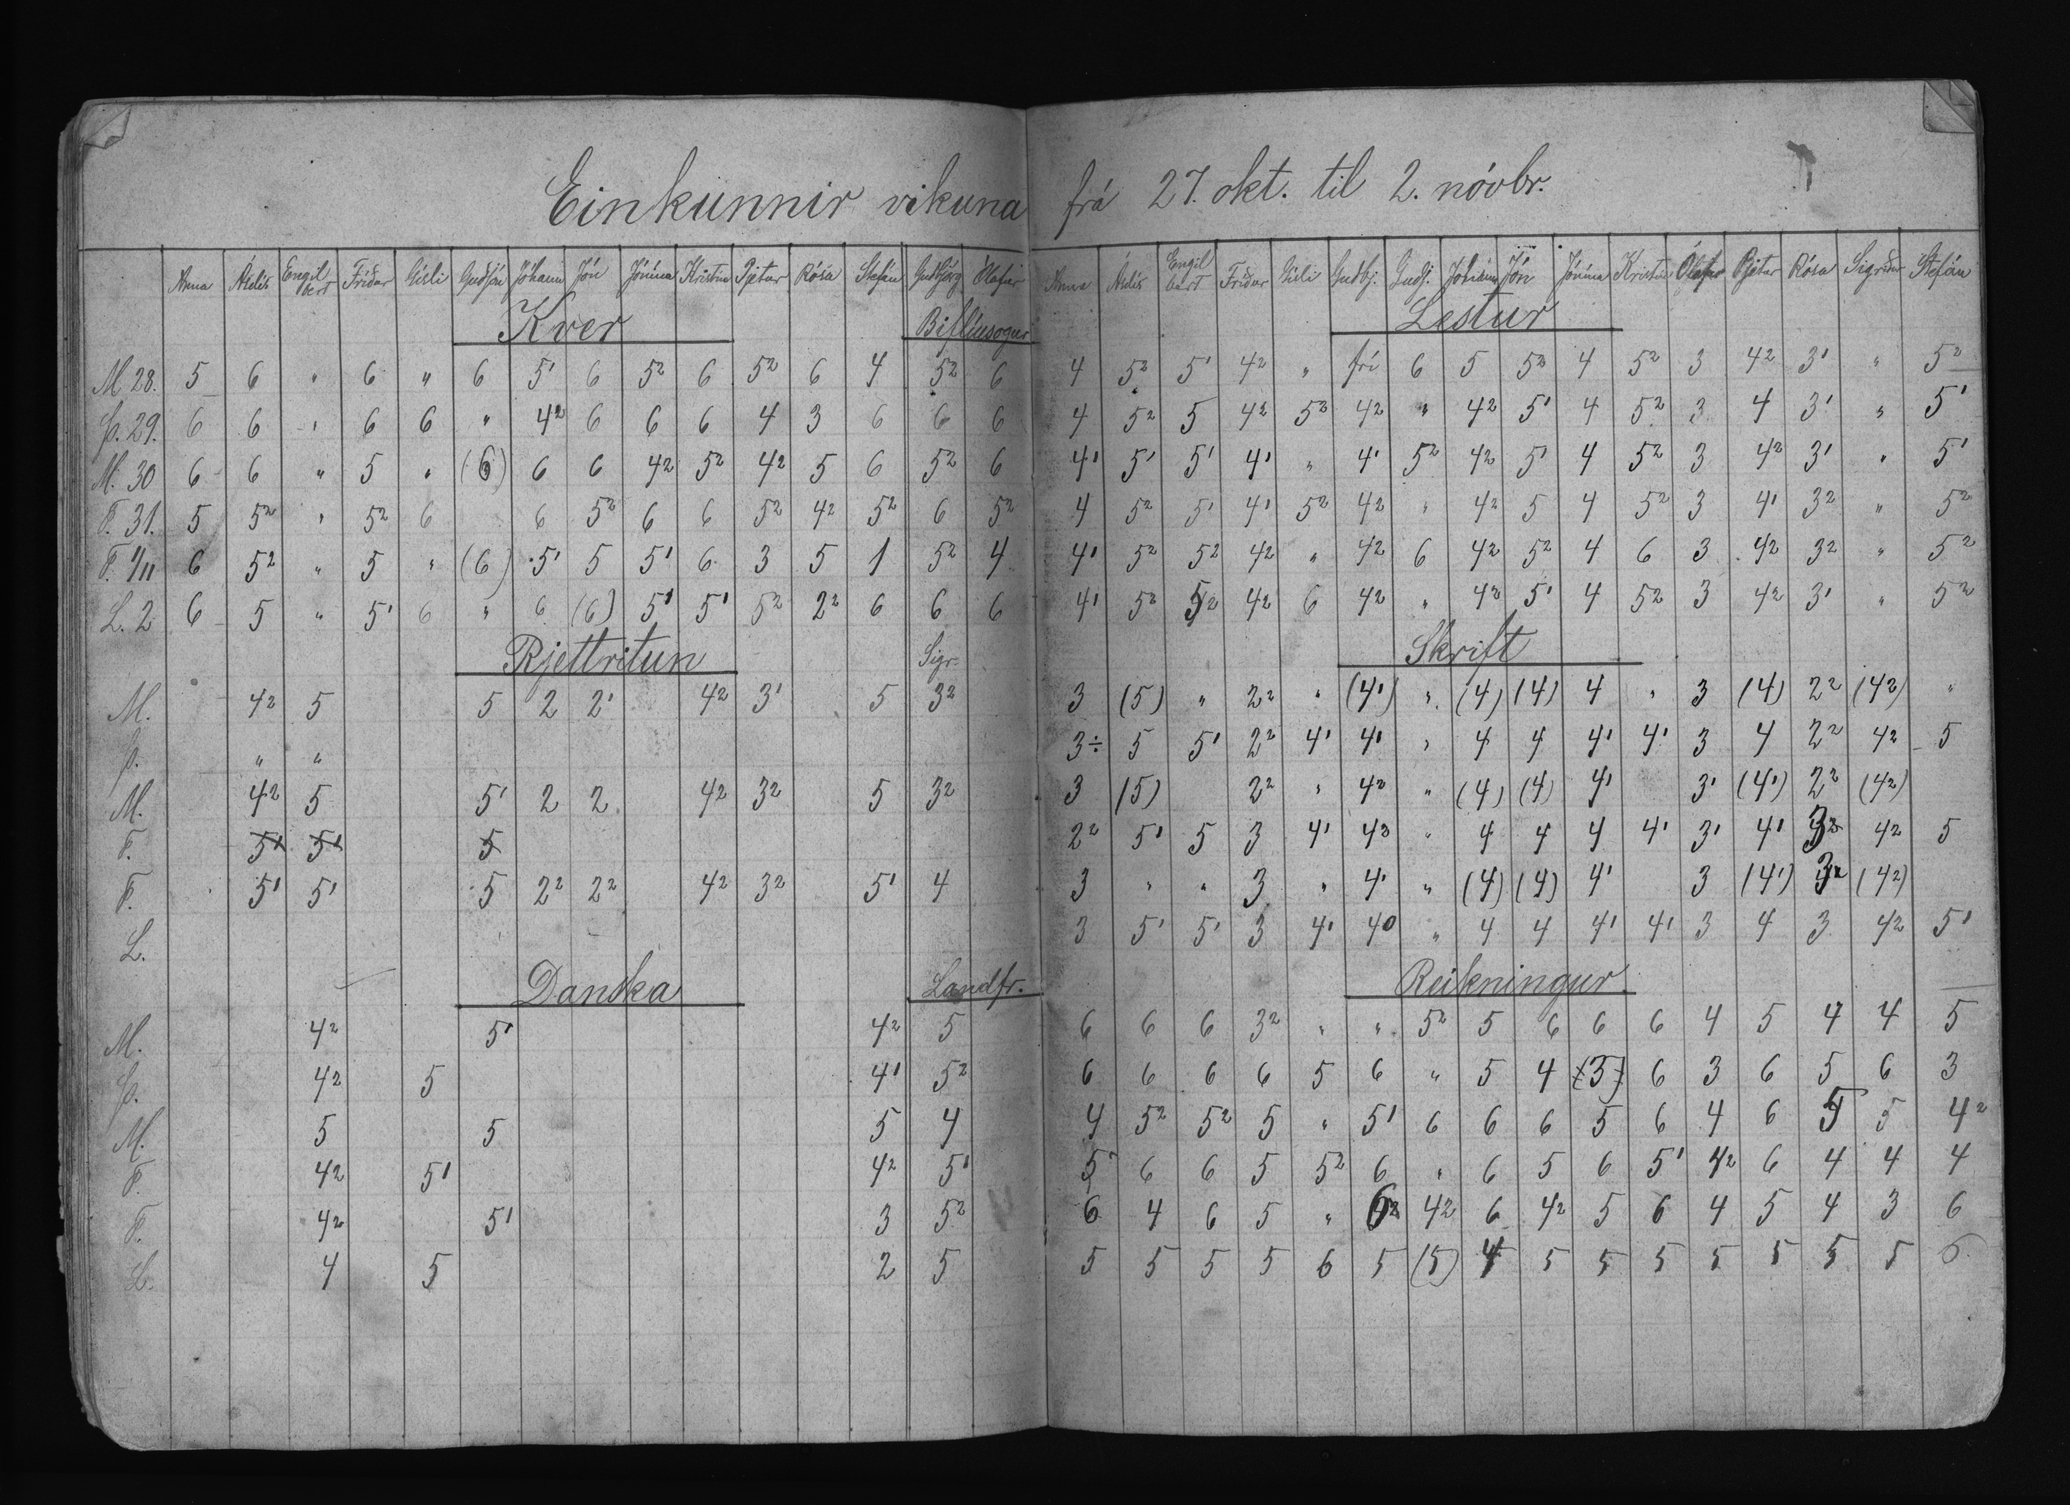 Einkunnir vikuna frá 27. okt. til 2. nóvbr.
Anna Áldís Engilbert Friður Gísli Guðjón Jóhann Jón Jónína Kristín Pjetur Rósa Stefán Guðbjörg Ólafur
Kver Biflíusögur
M 28. 5 6 " 6 " 6 5¹ 6 5² 6 5² 6 4 5² 6
Þ. 29. 6 6 " 6 6 " 4² 6 6 6 4 3 6 6 6
M. 30 6 6 " 5 " (6) 6 6 4² 5² 4² 5 6 5² 6
F. 31. 5 5² " 5² 6 6 5² 6 6 5² 4² 5² 6 5²
F. 1/11 6 5² " 5 " (6) 5¹ 5 5¹ 6 3 5 1 5² 4
L. 2 6 5 " 5¹ 6 " 6 (6) 5¹ 5¹ 5² 2² 6 6 6
Rjettritun Sigr.
M. 4² 5 5 2 2¹ 4² 3¹ 5 3²
Þ. " "
M. 4² 5 5¹ 2 2 4² 3² 5 3²
F. 5¹ 5¹ 5
F. 5¹ 5¹ 5 2² 2² 4² 3² 5¹ 4
L.
Danska Landfr.
M. 4² 5¹ 4² 5
Þ. 4² 5 4¹ 5²
M. 5 5 5 4
F. 4² 5¹ 4² 5¹
F. 4² 5¹ 3 5²
L. 4 5 2 5
Anna Áldís Engilbert Friður Gísli Guðbj. Guðj. Jóhann Jón Jónína Kristín Ólafur Pjetur Rósa Sigríður Stefán
Lestur
4 5² 5¹ 4² " frí 6 5 5² 4 5² 3 4² 3¹ " 5²
4 5² 5 4² 5² 4² " 4² 5¹ 4 5² 3 4 3¹ " 5¹
4¹ 5¹ 5¹ 4¹ " 4¹ 5² 4² 5¹ 4 5² 3 4² 3¹ " 5¹
4 5² 5¹ 4¹ 5² 4² " 4² 5 4 5² 3 4¹ 3² " 5²
4¹ 5² 5² 4² " 4² 6 4² 5² 4 6 3 4² 3² " 5²
4¹ 5² 5² 4² 6 4² " 4² 5¹ 4 5² 3 4² 3¹ " 5²
Skrift
3 (5) " 2² " (4¹) " (4) (4) 4 " 3 (4) 2² (4²) "
3÷ 5 5¹ 2² 4¹ 4¹ " 4 4 4¹ 4¹ 3 4 2² 4² 5
3 (5) 2² " 4² " (4) (4) 4¹ 3¹ (4¹) 2² (4²)
2² 5¹ 5 3 4¹ 4² " 4 4 4 4¹ 3¹ 4¹ 3² 4² 5
3 " " 3 " 4¹ " (4) (4) 4¹ 3 (4¹) 3² (4²)
3 5¹ 5¹ 3 4¹ 40 " 4 4 4¹ 4¹ 3 4 3 4² 5¹
Reikningur.
6 6 6 3² " " 5² 5 6 6 6 4 5 4 4 5
6 6 6 6 5 6 " 5 4 (3) 6 3 6 5 6 3
4 5² 5² 5 " 5¹ 6 6 6 5 6 4 6 5 5 4²
5² 6 6 5 5² 6 " 6 5 6 5¹ 4² 6 4 4 4
6 4 6 5 " 6² 4² 6 4² 5 6 4 5 4 3 6
5 5 5 5 6 5 (5) 4 5 5 5 5 5 5 5 6